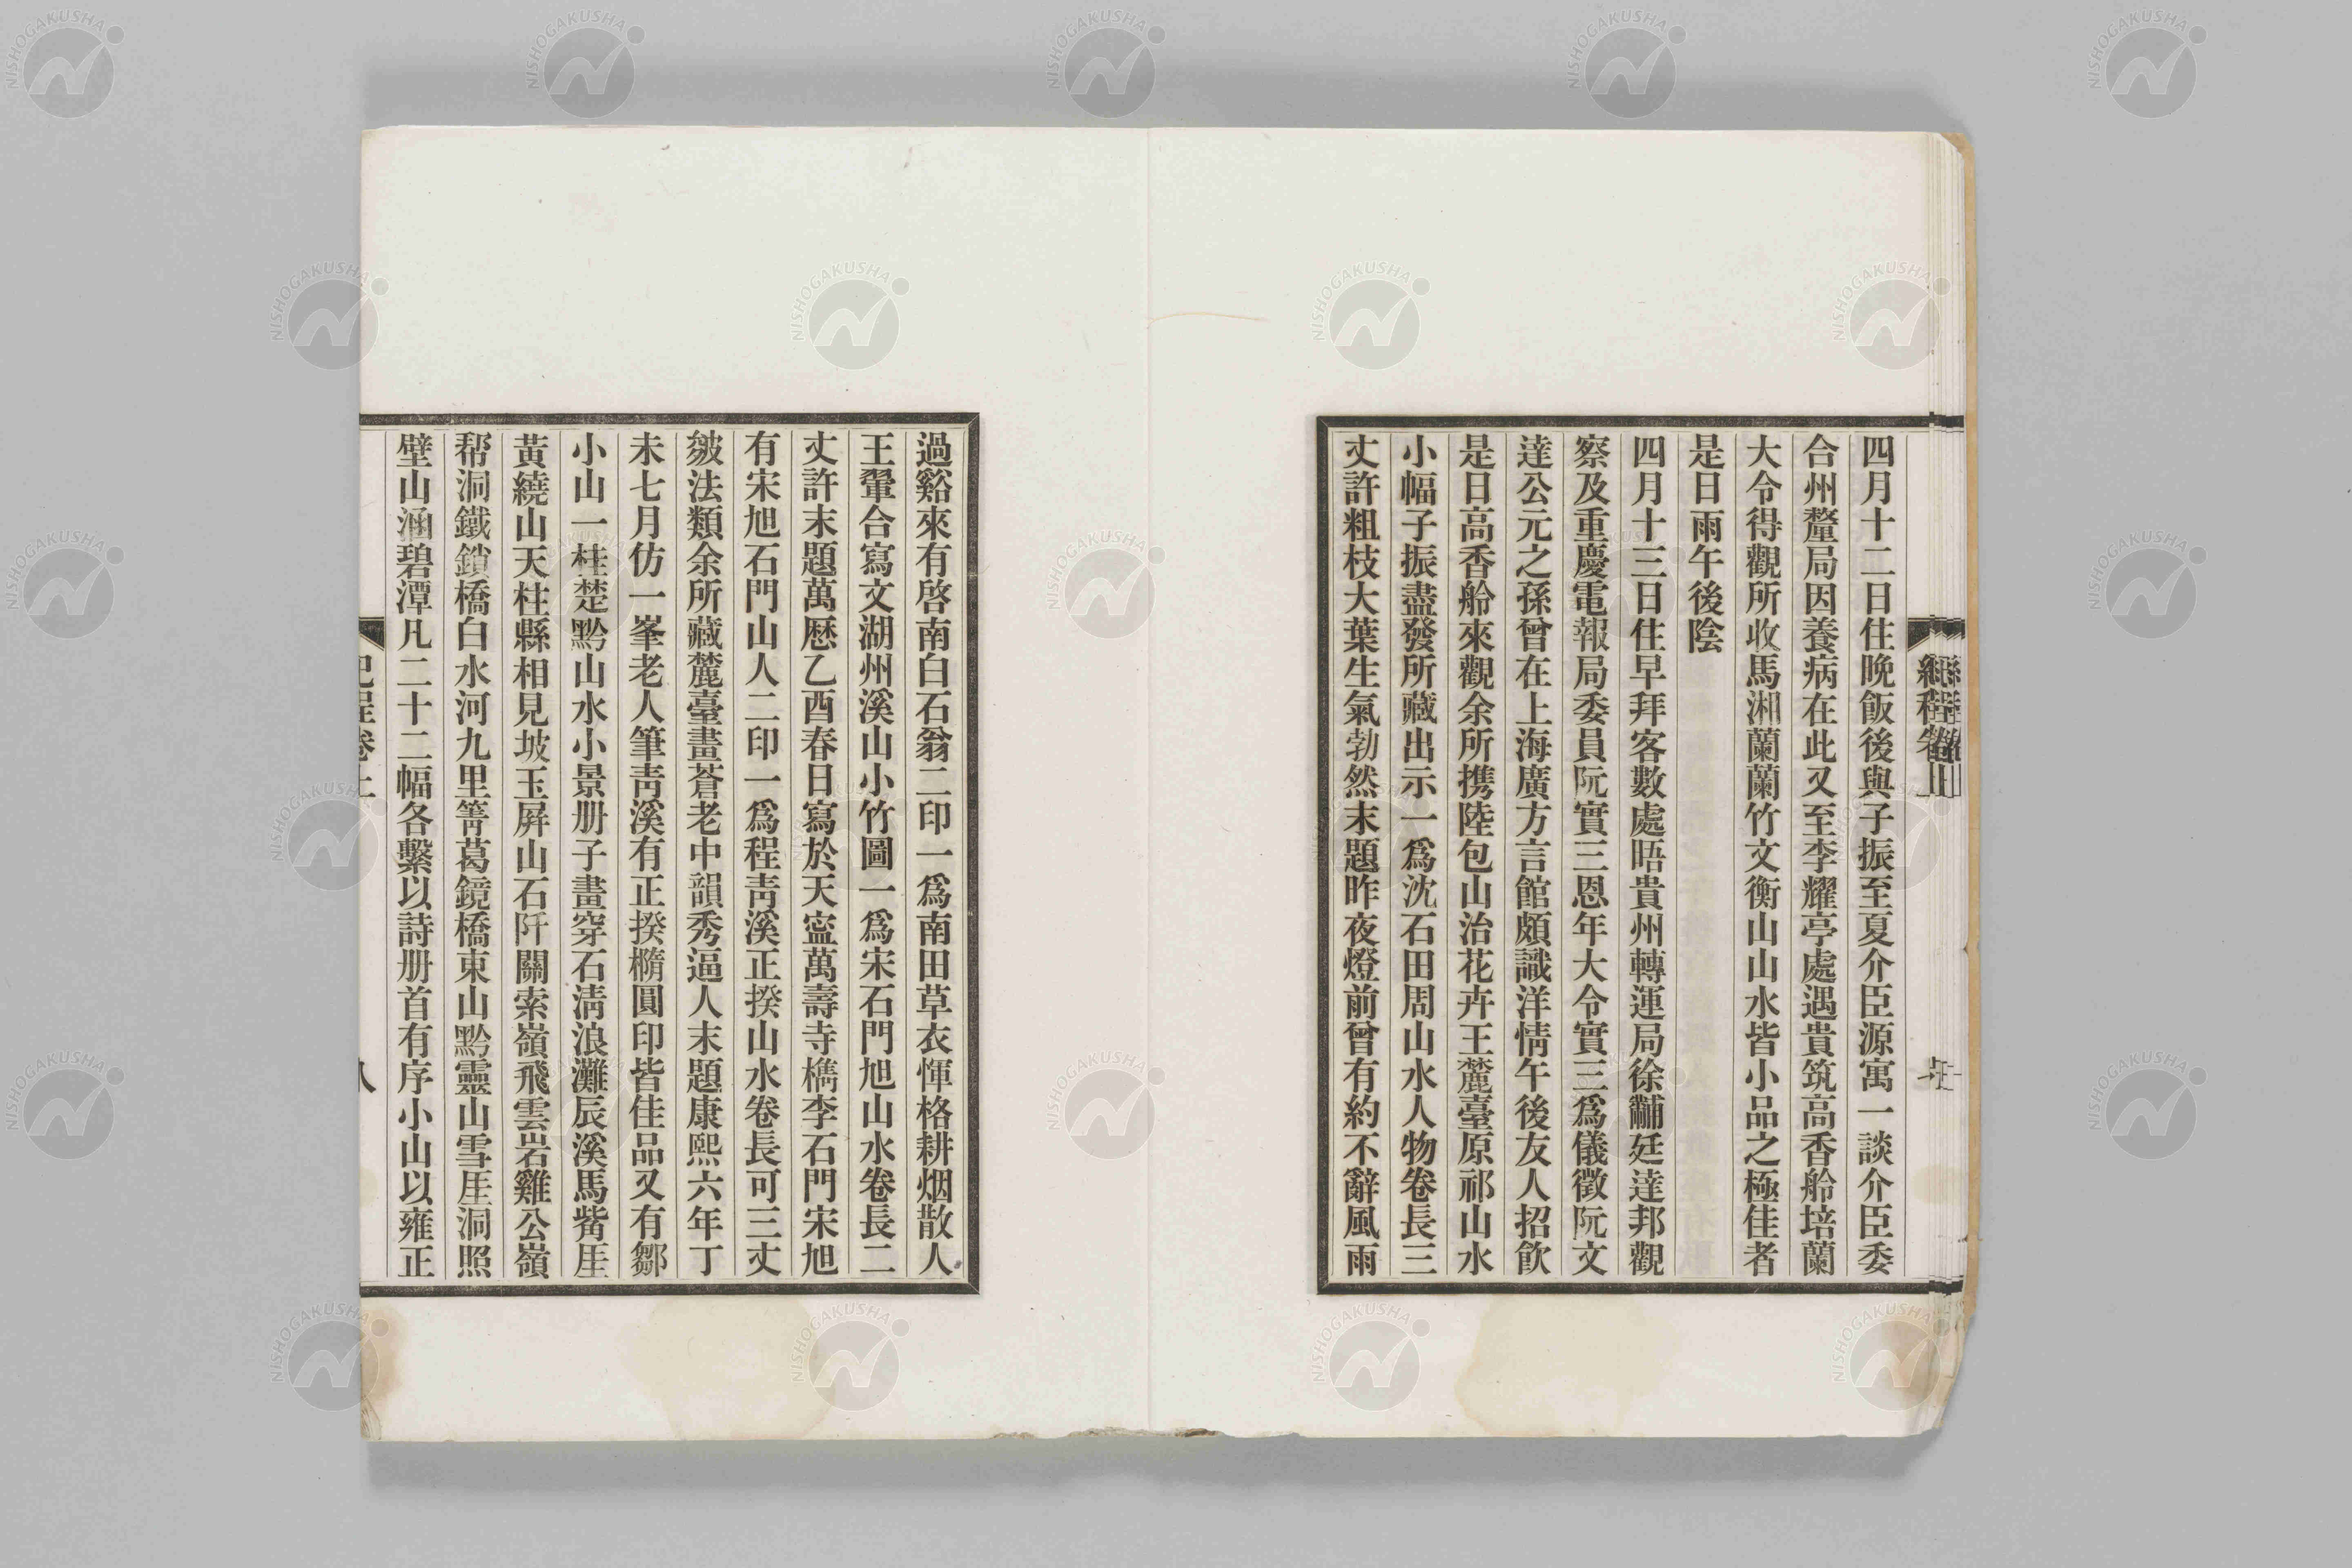 四月十二日住晚飯後與子振至夏介臣源寓一談介臣委
合州釐局因養病在此又至李耀亭處遇貴筑高香舲培蘭
大令得觀所收馬湘蘭蘭竹文衡山山水皆小品之極佳者
是日雨午後陰
四月十三日住早拜客數處晤貴州轉運局徐黼廷達邦觀
察及重慶電報局委員阮實三恩年大令實三爲儀徵阮文
達公元之孫曾在上海廣方言館頗識洋情午後友人招飲
是日高香舲來觀余所携陸包山治花卉王麓臺原祁山水
小幅子振盡發所藏出示一爲沈石田周山水人物卷長三
丈許粗枝大葉生氣勃然末題昨夜燈前曾有約不辭風雨
過谿來有啓南白石翁二印一爲南田草衣惲格耕烟散人
王翬合寫文湖州溪山小竹圖一爲宋石門旭山水卷長二
丈許末題萬厯乙酉春日寫於天寍萬壽寺檇李石門宋旭
有宋旭石門山人二印一爲程靑溪正揆山水卷長可三丈
皴法類余所藏麓臺畫蒼老中韻秀逼人末題康熙六年丁
未七月仿一峯老人筆靑溪有正揆橢圓印皆佳品又有鄒
小山一桂楚黔山水小景册子畫穿石淸浪灘辰溪馬觜厓
黃繞山天柱縣相見坡玉屛山石阡關索嶺飛雲岩雞公嶺
帮洞鐵鎖橋白水河九里箐葛鏡橋東山黔靈山雪厓洞照
壁山涵碧潭凡二十二幅各繫以詩册首有序小山以雍正
紀程卷上
八
NISHOGAKUSHA